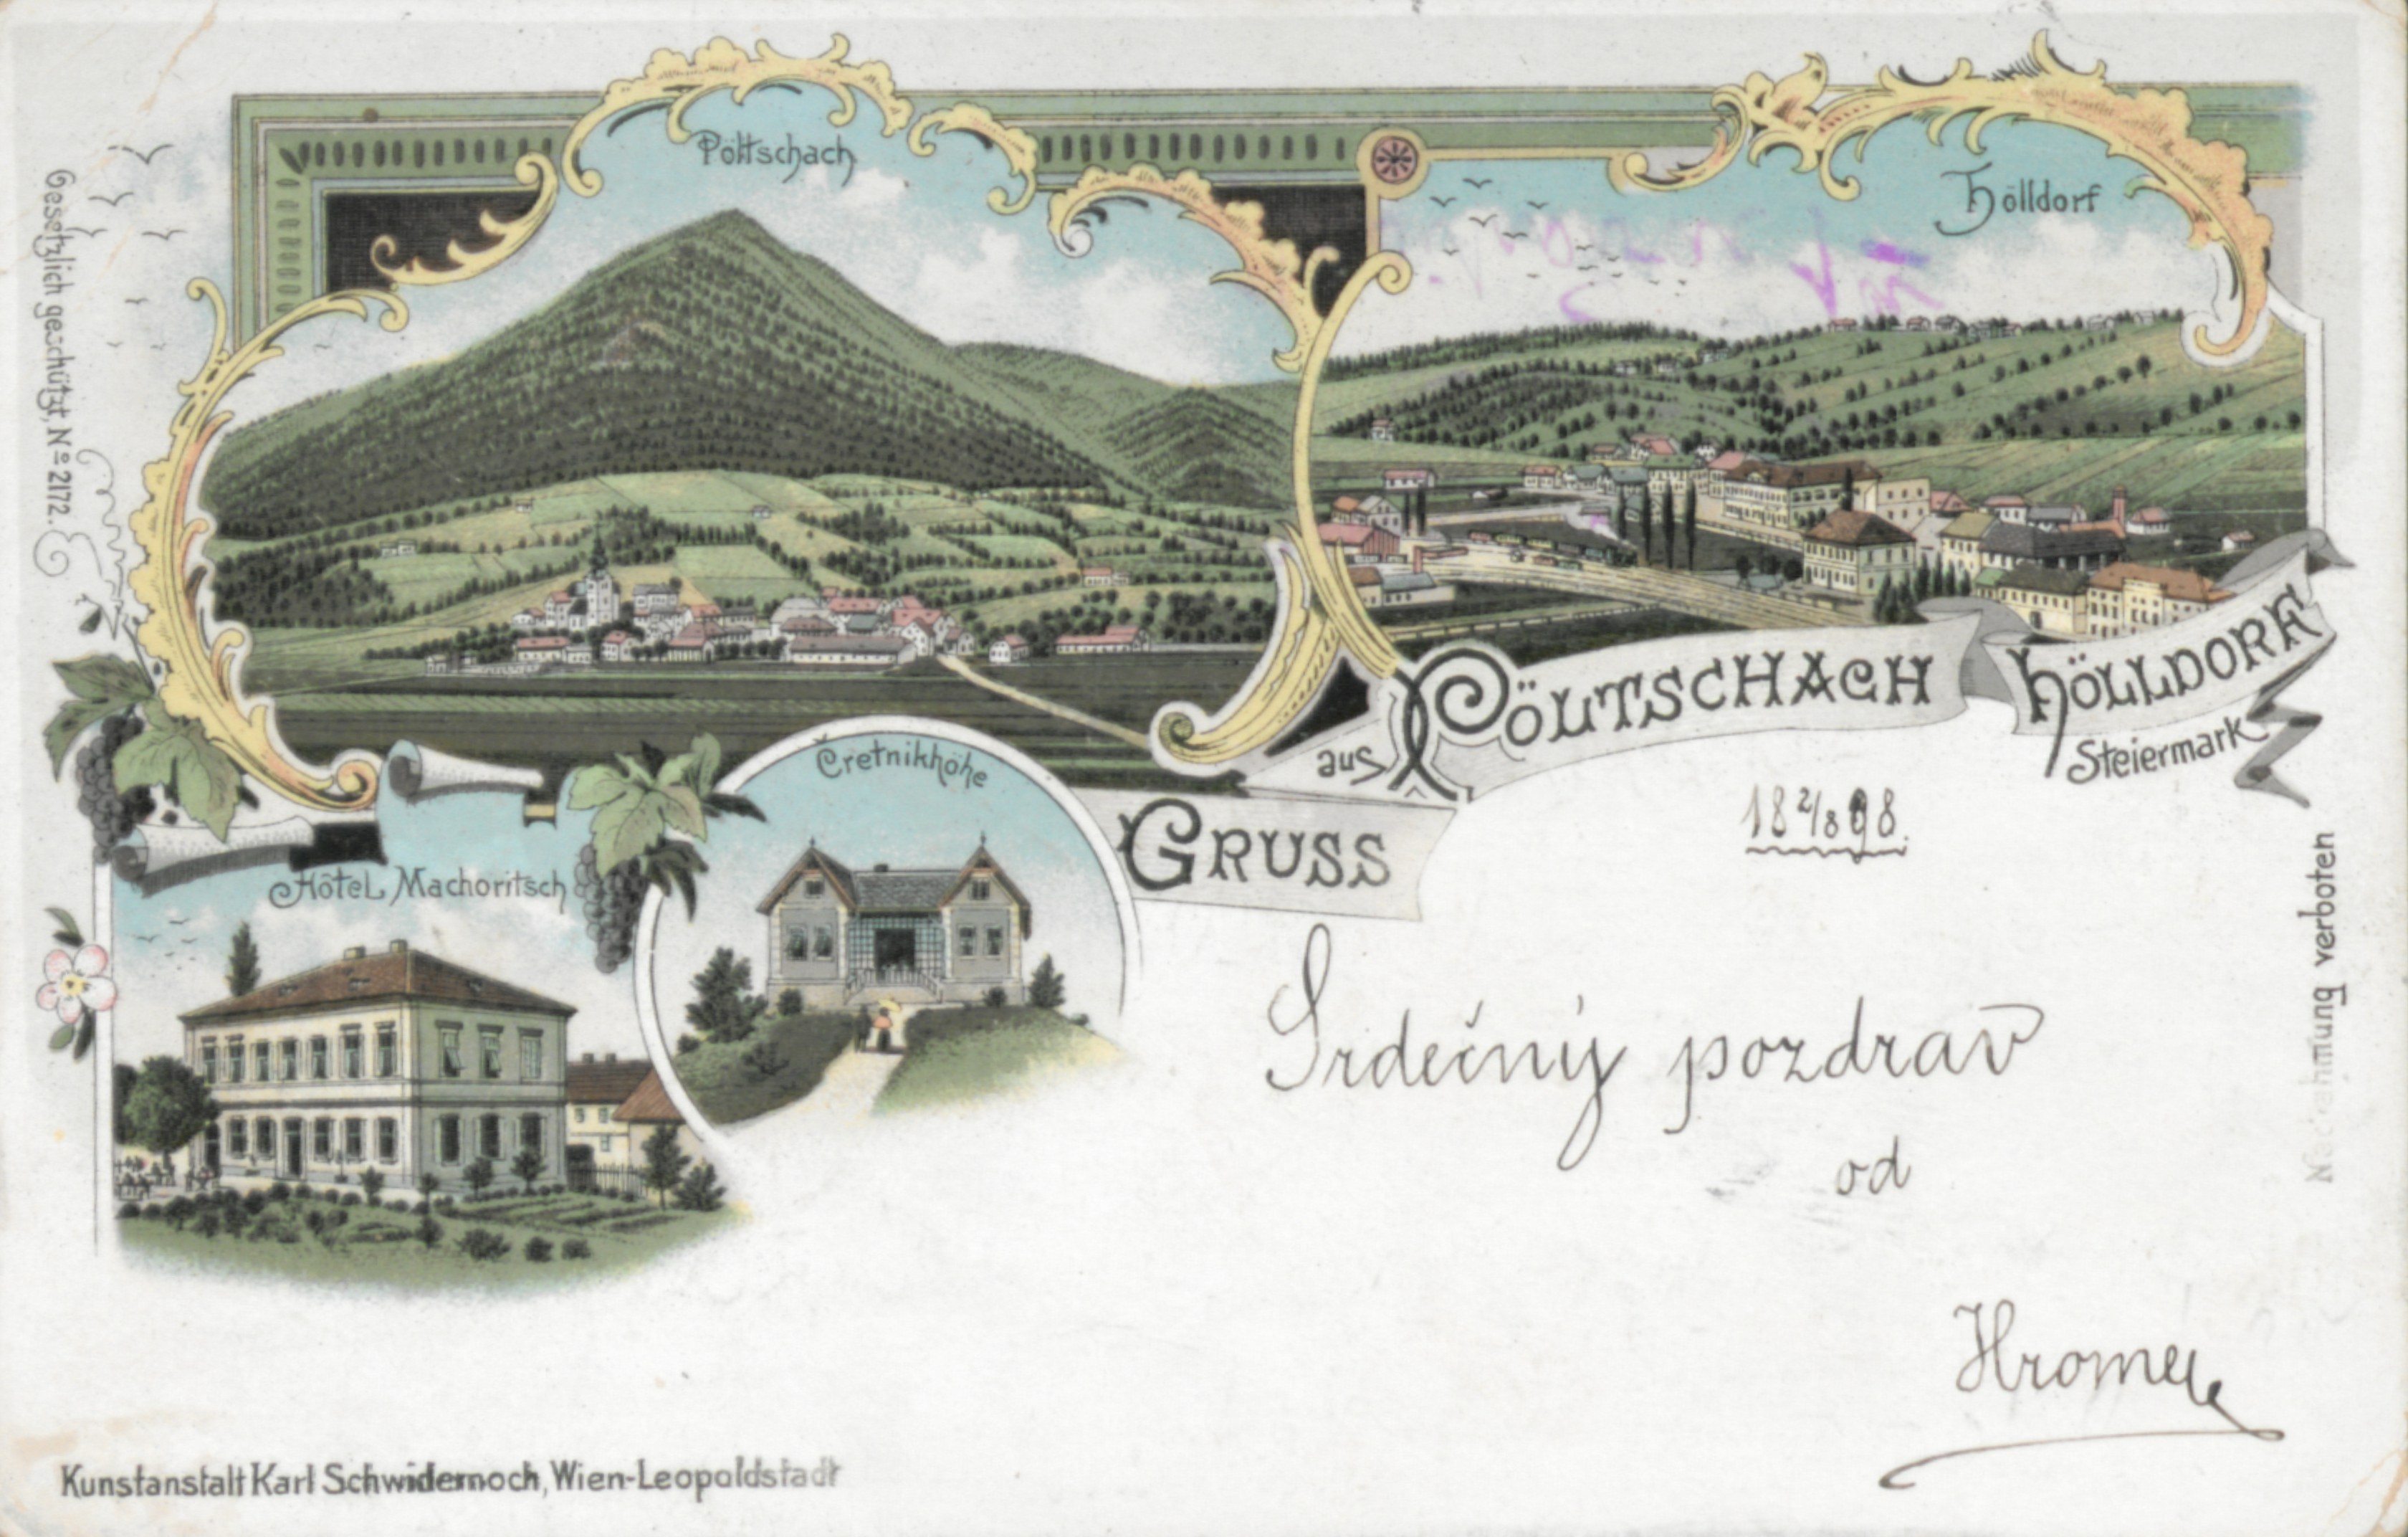 Pöltschach
Hölldorf
Gesetzlich geschützt, No 2172.
GRUSS
aus PÖLTSCHACH HÖLLDORF
Steiermark
Čretnikhöhe
Hôtel Machoritsch
18 2/8 98.
Srdečný pozdrav
od
Nachahmung verboten
Kunstanstalt Karl Schwidernoch, Wien-Leopoldstadt